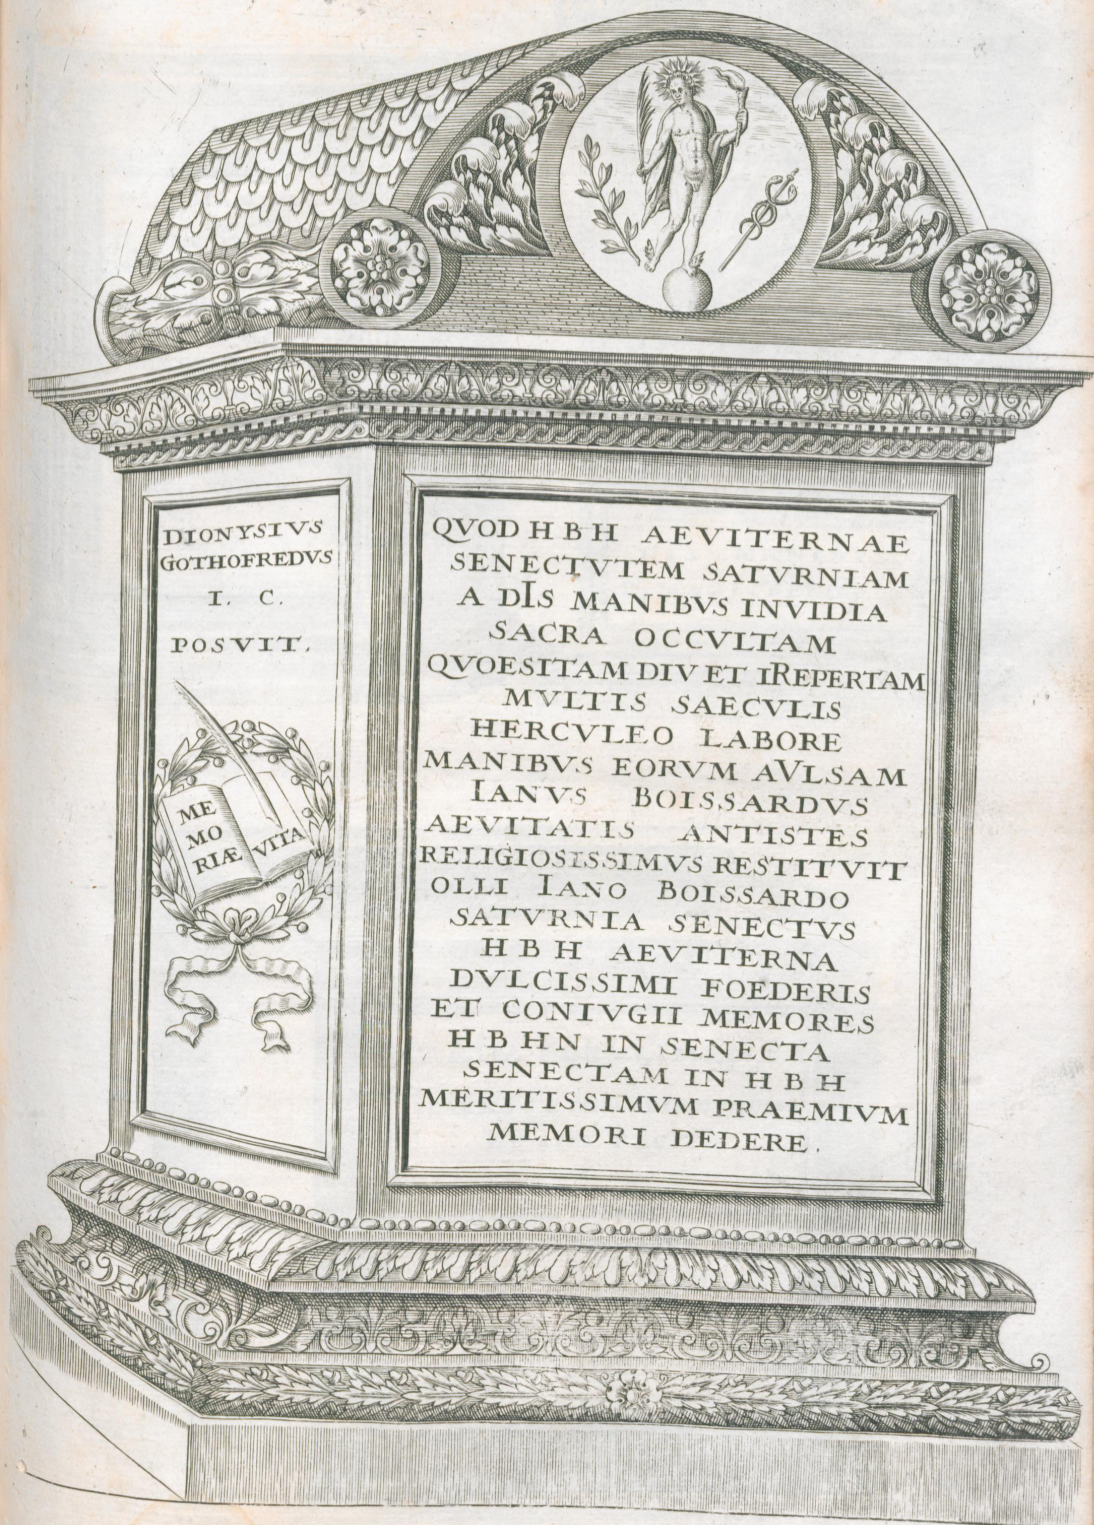 DIONYSIVS
GOTHOFREDVS
I. C.
POSVIT.
ME
MO
RIÆ
VITA
QVOD H B H AEVITERNAE
SENECTVTEM SATVRNIAM
A DIS MANIBVS INVIDIA
SACRA OCCVLTAM
QVOESITAM DIV ET IREPERTAM
MVLTIS SAECVLIS
HERCVLEO LABORE
MANIBVS EORVM AVLSAM
IANVS BOISSARDVS
AEVITATIS ANTISTES
RELIGIOSISSIMVS RESTITVIT
OLLI IANO BOISSARDO
SATVRNIA SENECTVS
H B H AEVITERNA
DVLCISSIMI FOEDERIS
ET CONIVGII MEMORES
H B H N IN SENECTA
SENECTAM IN H B H
MERITISSIMVM PRAEMIVM
MEMORI DEDERE.